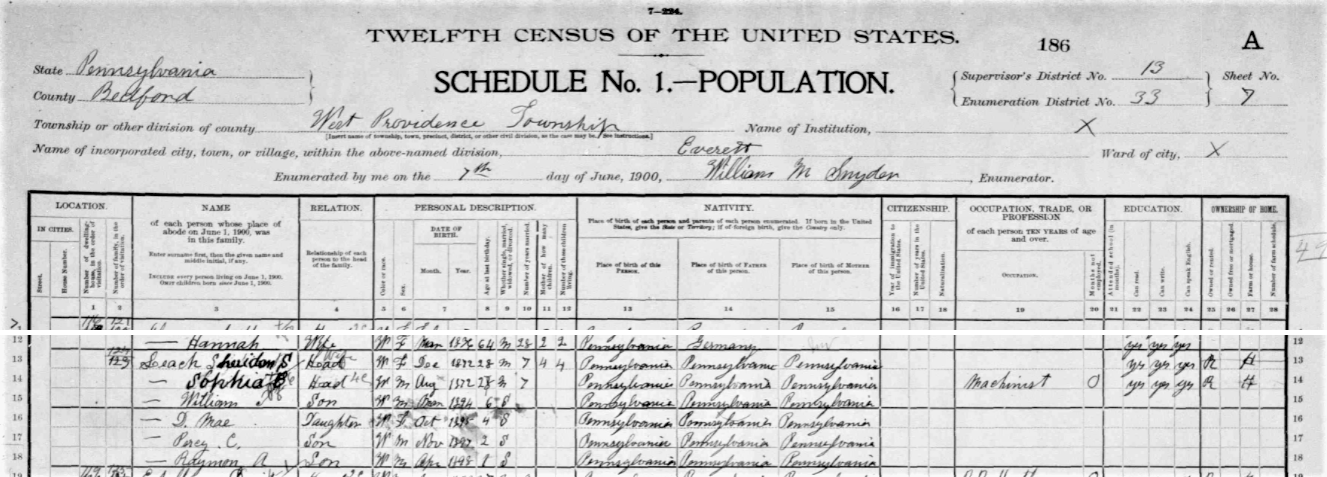 7-224.
TWELFTH CENSUS OF THE UNITED STATES.
186 A
State Pennsylvania
County Bedford
SCHEDULE No. 1.—POPULATION.
Supervisor's District No. 13 Sheet No.
Enumeration District No. 33 7
Township or other division of county West Providence Township Name of Institution, X
[Insert name of township, town, precinct, district, or other civil division, as the case may be. See instructions.]
Name of incorporated city, town, or village, within the above-named division, Everett Ward of city, X
Enumerated by me on the 7th day of June, 1900, William M Snyder, Enumerator.
LOCATION. NAME RELATION. PERSONAL DESCRIPTION. NATIVITY. CITIZENSHIP. OCCUPATION, TRADE, OR PROFESSION EDUCATION. OWNERSHIP OF HOME.
IN CITIES. Street. House Number. Number of dwelling-house, in the order of visitation. Number of family, in the order of visitation.
of each person whose place of abode on June 1, 1900, was in this family.
Enter surname first, then the given name and middle initial, if any.
Include every person living on June 1, 1900.
Omit children born since June 1, 1900.
Relationship of each person to the head of the family.
Color or race. Sex. DATE OF BIRTH. Month. Year. Age at last birthday. Whether single, married, widowed, or divorced. Number of years married. Mother of how many children. Number of these children living.
Place of birth of each person and parents of each person enumerated. If born in the United States, give the State or Territory; if of foreign birth, give the Country only.
Place of birth of this Person. Place of birth of Father of this person. Place of birth of Mother of this person.
Year of immigration to the United States. Number of years in the United States. Naturalization.
of each person TEN YEARS of age and over.
Occupation. Months not employed.
Attended school (in months). Can read. Can write. Can speak English.
Owned or rented. Owned free or mortgaged. Farm or house. Number of farm schedule.
1 2 3 4 5 6 7 8 9 10 11 12 13 14 15 16 17 18 19 20 21 22 23 24 25 26 27 28
12 — Hannah Wife W F 64 M 28 2 2 Pennsylvania Germany yes yes yes 12
13 Leach Sheldon S Head W F Dec 1872 28 M 7 4 4 Pennsylvania Pennsylvania Pennsylvania yes yes yes R H 13
14 — Sophia Head W M Aug 1872 M 7 Pennsylvania Pennsylvania Pennsylvania Machinist 0 yes yes yes R H 14
15 — William Son W M 1894 6 S Pennsylvania Pennsylvania Pennsylvania 15
16 — D. Mae Daughter W F Oct 1895 4 S Pennsylvania Pennsylvania Pennsylvania 16
17 — Percy C. Son W M Nov 1897 2 S Pennsylvania Pennsylvania Pennsylvania 17
18 — Raymon A Son W M Apr 1 S Pennsylvania Pennsylvania Pennsylvania 18